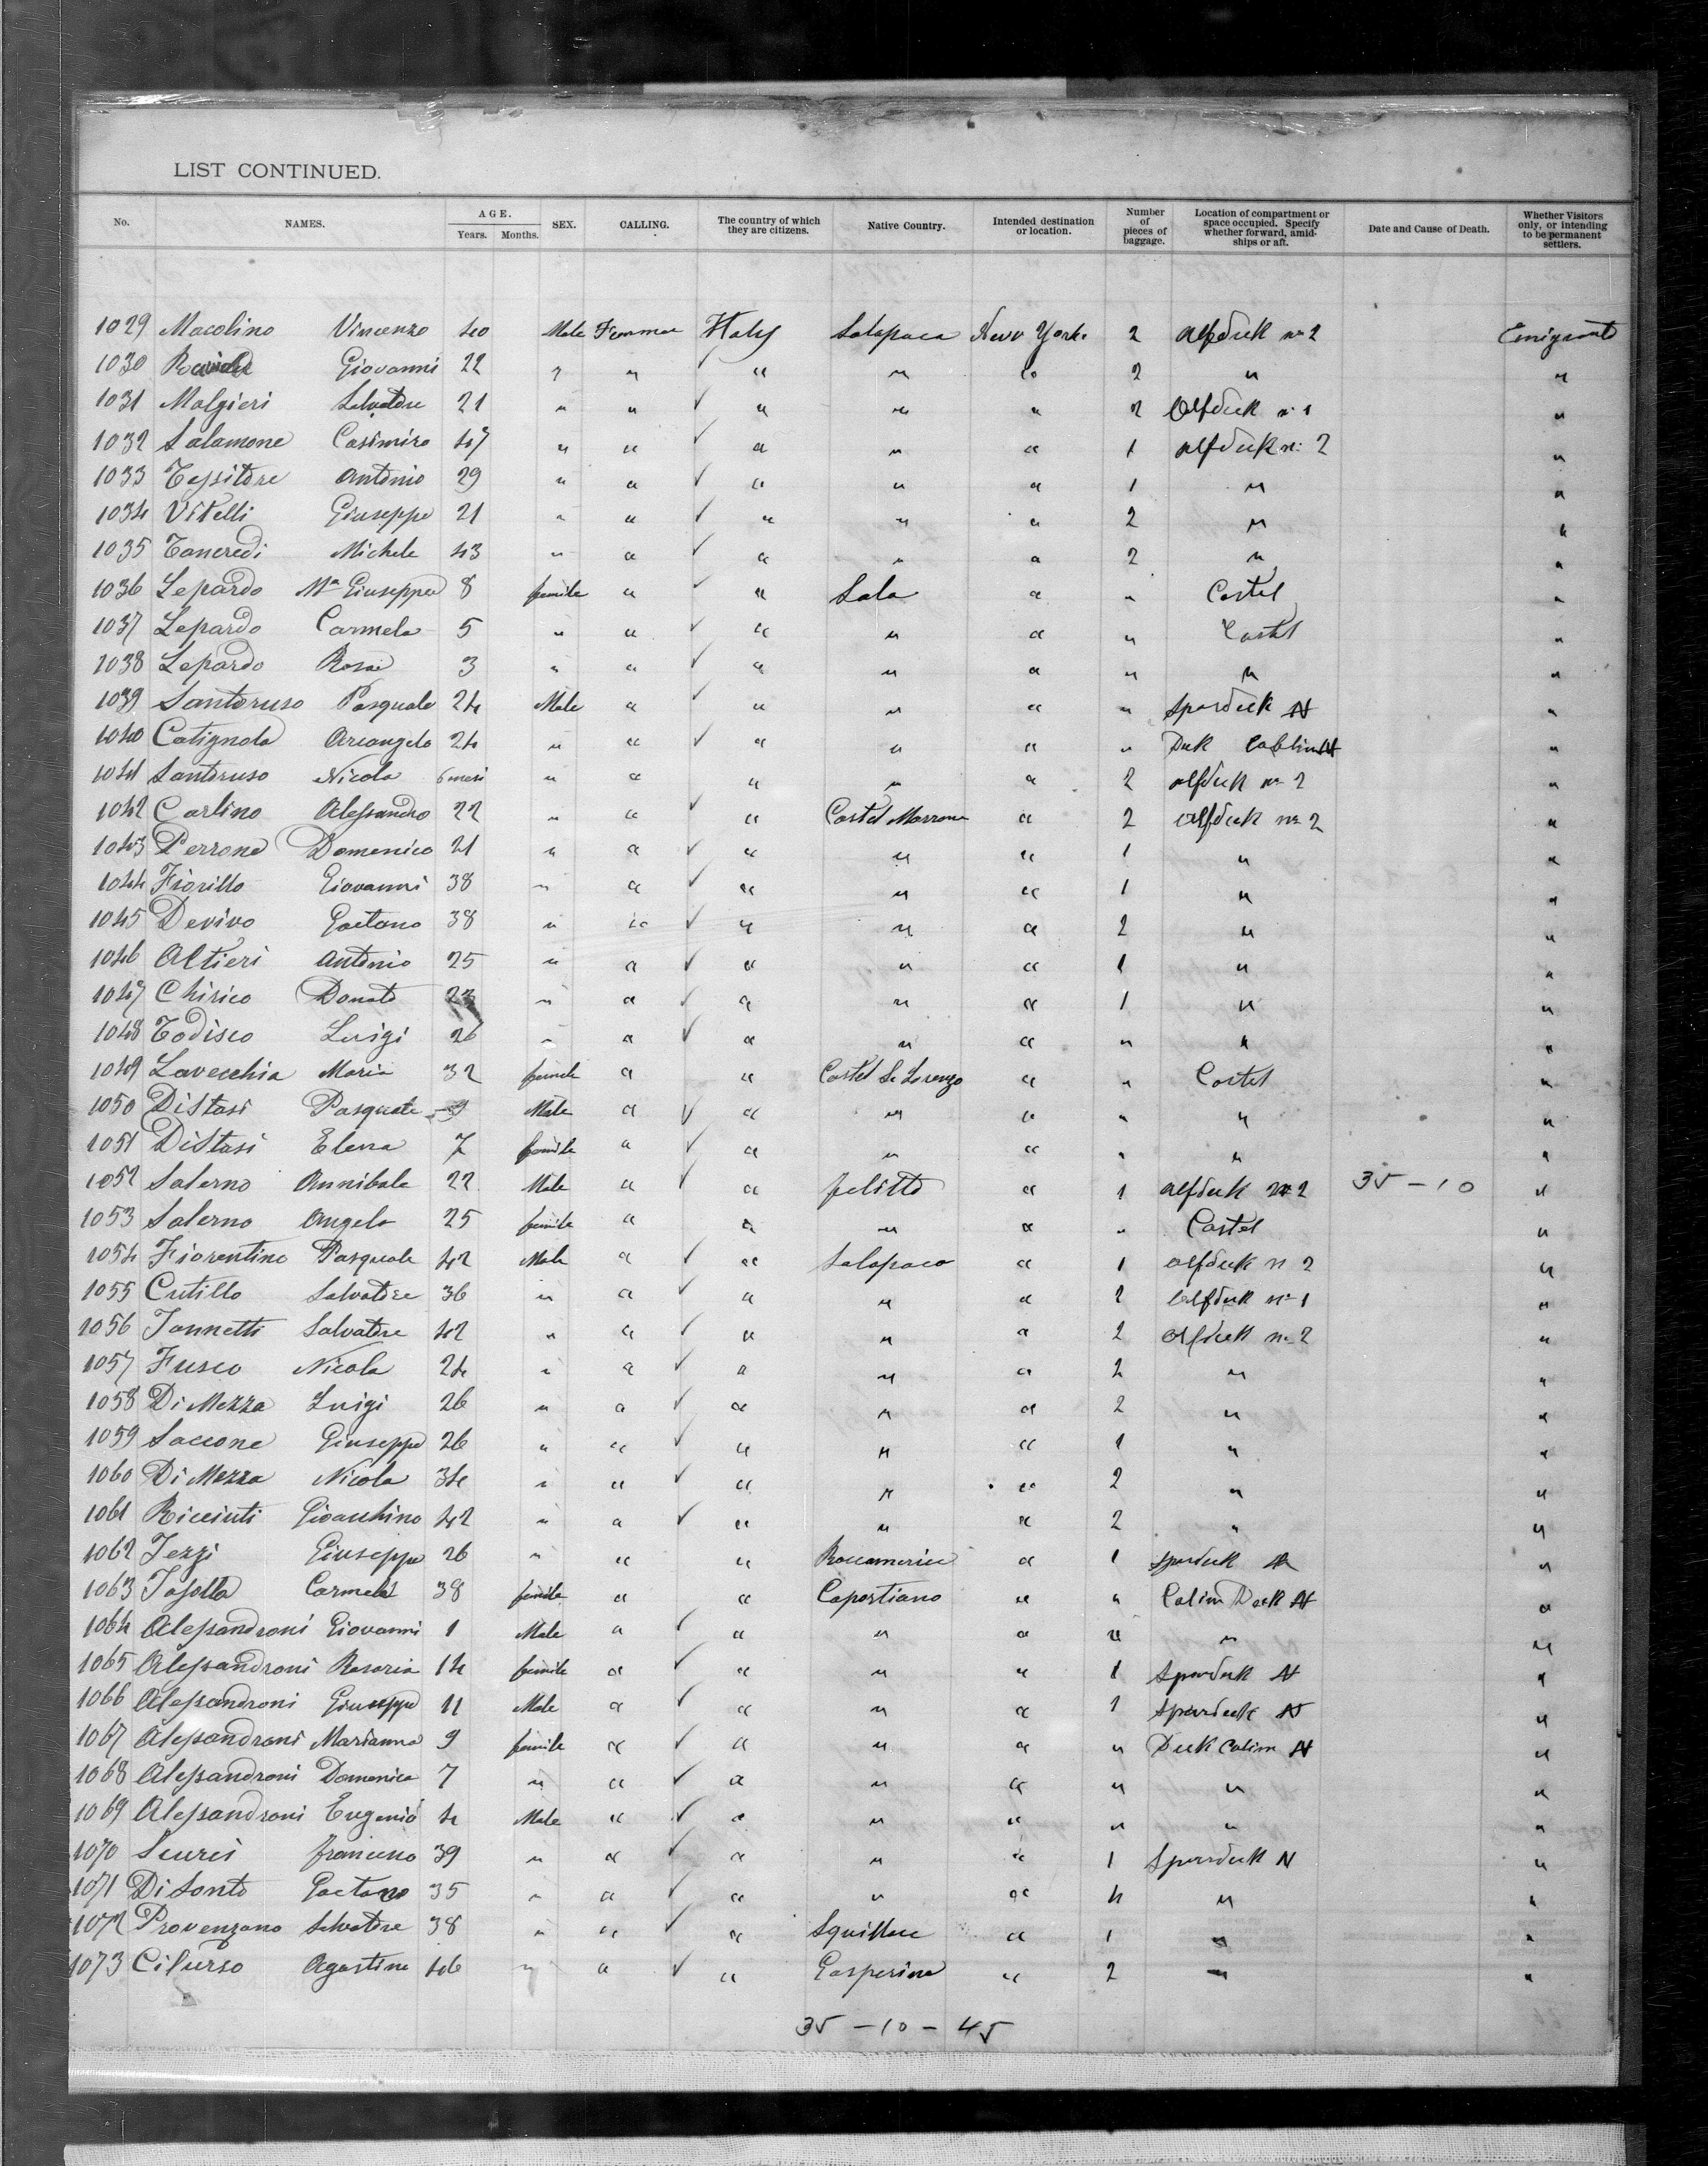 LIST CONTINUED.
No. NAMES. AGE. Years. Months. SEX. CALLING. The country of which they are citizens. Native Country. Intended destination or location. Number of pieces of baggage. Location of compartment or space occupied. Specify whether forward, amidships or aft. Date and Cause of Death. Whether Visitors only, or intending to be permanent settlers.
1029 Macolino Vincenzo 40 Male Italy Solopaca New York 2 n° 2 Emigrant
1030 Giovanni 22 " " " " " 2 " "
1031 Malgieri Salvatore 21 " " " " " 2 n° 1 "
1032 Salamone Casimiro 47 " " " " " 1 n° 2 "
1033 Tessitore Antonio 29 " " " " " 1 " "
1034 Vitelli Giuseppe 21 " " " " " 2 " "
1035 Tancredi Michele 43 " " " " " 2 " "
1036 Lepardo Ma Giuseppa 8 female " " Sala " " Castel "
1037 Lepardo Carmela 5 " " " " " " Castel "
1038 Lepardo Rosa 3 " " " " " " " "
1039 Santoruso Pasquale 24 Male " " " " " spardeck N "
1040 Catignola Arcangelo 24 " " " " " " Deck "
1041 Santoruso Nicola 6 mesi " " " " " 2 n° 2 "
1042 Carlino Alessandro 22 " " " Castel Morrone " 2 n° 2 "
1043 Perrone Domenico 21 " " " " " 1 " "
1044 Fiorillo Giovanni 38 " " " " " 1 " "
1045 Devivo Gaetano 38 " " " " " 2 " "
1046 Altieri Antonio 25 " " " " " 1 " "
1047 Chirico Donato 23 " " " " " 1 " "
1048 Todisco Luigi 26 " " " " " " " "
1049 Lavecchia Maria 32 female " " Castel S. Lorenzo " " Castel "
1050 DiStasi Pasquale 9 Male " " " " " " "
1051 DiStasi Elena 7 female " " " " " " "
1052 Salerno Annibale 22 Male " " felitto " 1 n° 2 35 - 10 "
1053 Salerno Angela 25 female " " " " " Castel "
1054 Fiorentino Pasquale 42 Male " " Solopaca " 1 n 2 "
1055 Cutillo Salvatore 36 " " " " " 2 n° 1 "
1056 Iannetti Salvatore 42 " " " " " 2 n. 2 "
1057 Fusco Nicola 24 " " " " " 2 " "
1058 Di Mezza Luigi 26 " " " " " 2 " "
1059 Saccone Giuseppe 26 " " " " " 1 " "
1060 Di Mezza Nicola 34 " " " " " 2 " "
1061 Ricciuti Gioacchino 42 " " " " " 2 " "
1062 Iezzi Giuseppe 26 " " " " 1 spardeck N "
1063 Carmela 38 female " " " " Deck N "
1064 Alessandroni Giovanni 1 Male " " " " " " "
1065 Alessandroni Rosaria 14 female " " " " 1 Spardeck N "
1066 Alessandroni Giuseppe 11 Male " " " " 1 Spardeck N "
1067 Alessandroni Marianna 9 female " " " " " Deck N "
1068 Alessandroni Domenica 7 " " " " " " " "
1069 Alessandroni Eugenio 4 Male " " " " " " "
1070 39 " " " " " 1 Spardeck N "
1071 Di Santo Gaetano 35 " " " " " 4 " "
1072 Provenzano Salvatore 38 " " " Squillace " 1 " "
1073 Cilurso Agostino 46 " " " Gasperina " 2 " "
35 - 10 - 45